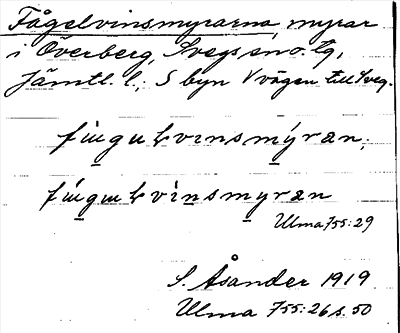 Fågelvinsmyrarna, myrar
i Överberg, Svegs sn o. tg,
Jämtl. l., S byn V vägen till Sveg.
S. Åsander 1919
Ulma 755:29
Ulma 755:26 s. 50